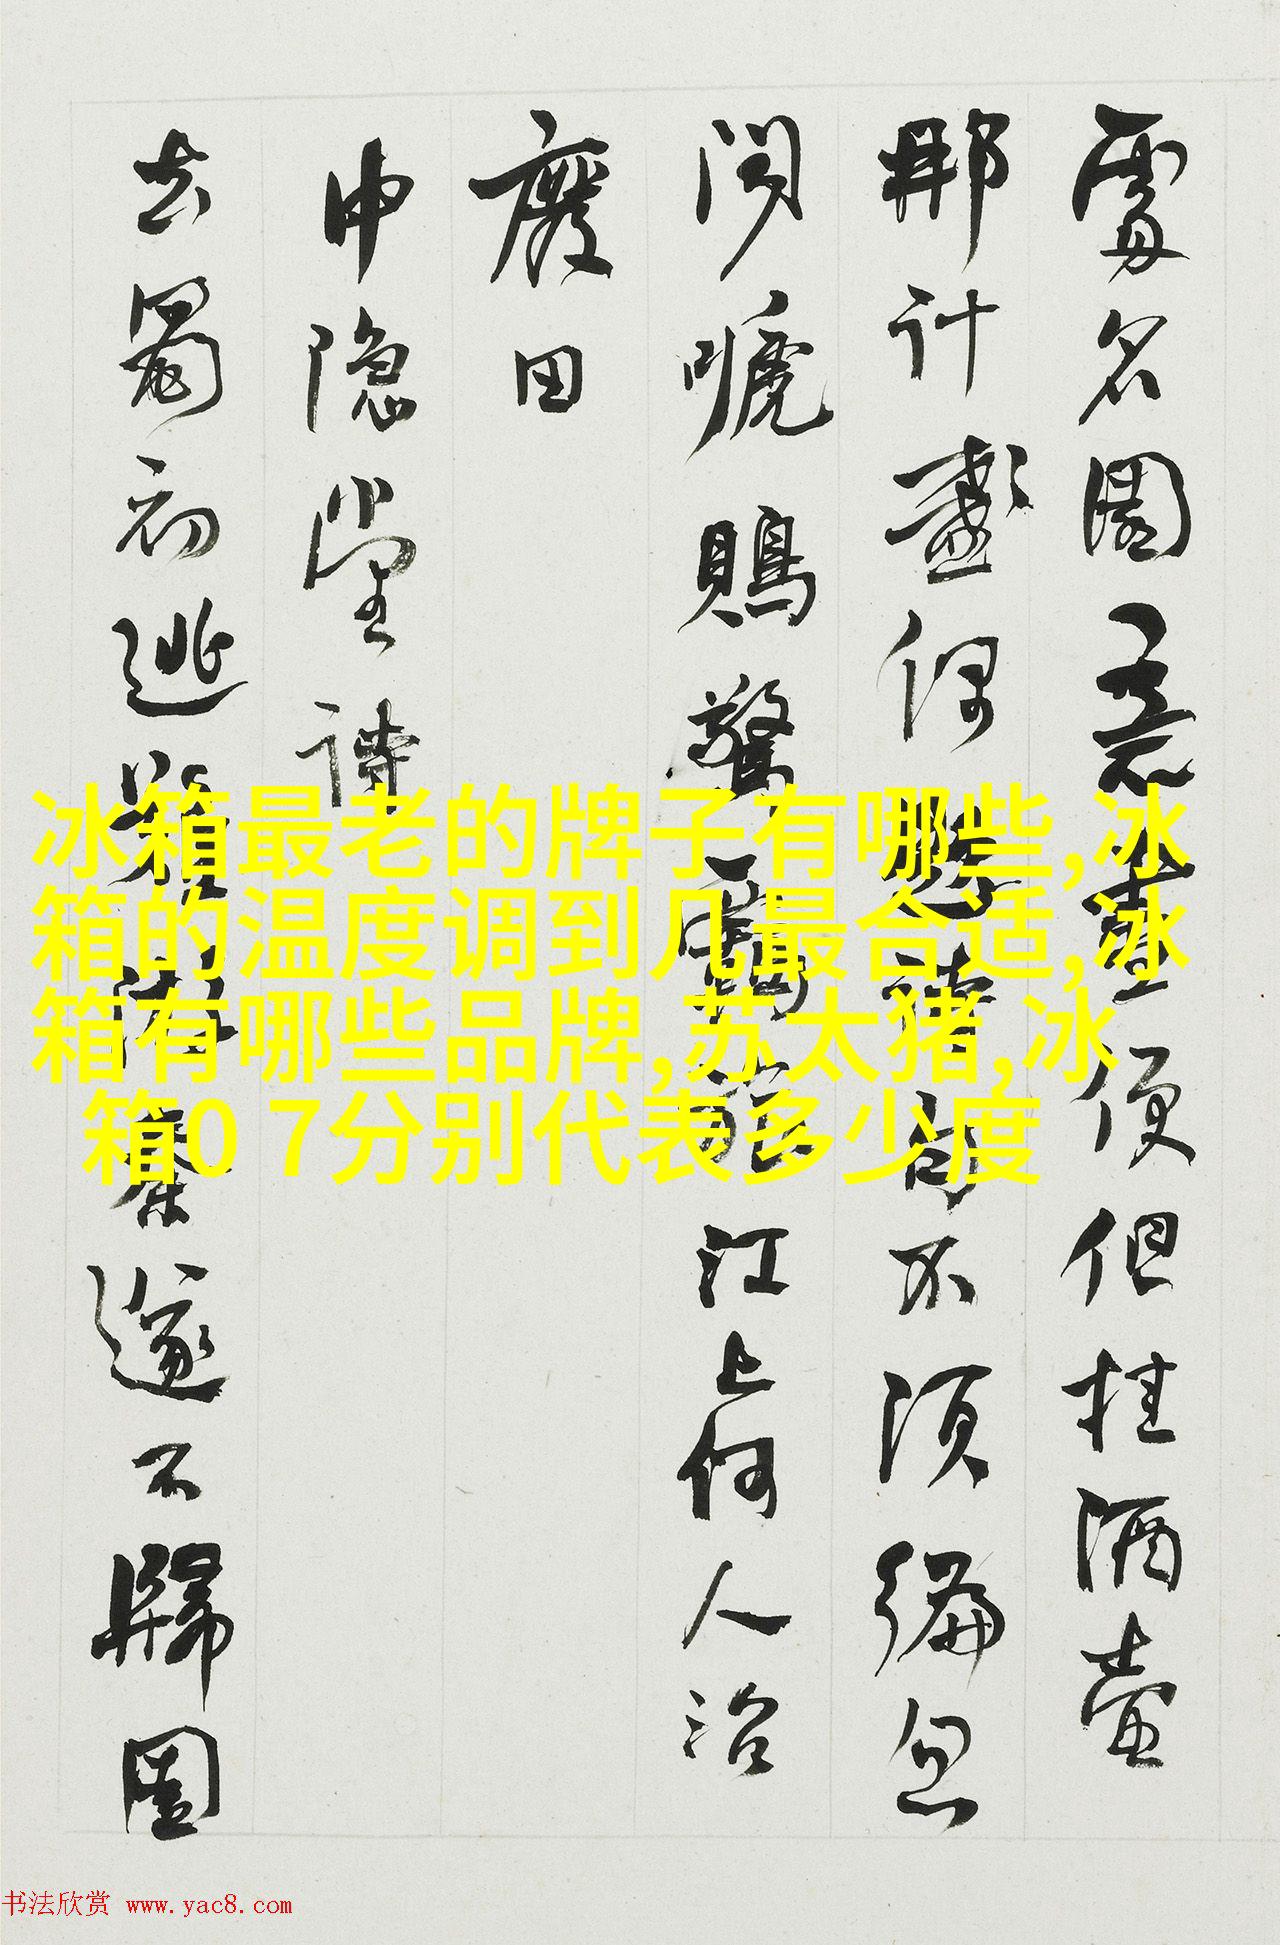 名園便但挂酒壺
那計不須編忽
聞驚江上何人治
廢田
申隱堂詩
去蜀初逃難游秦遂不歸園
冰箱最老的牌子有哪些,冰
箱的温度调到几最合适,冰
箱有哪些品牌,苏太猪,冰
箱0 7分别代表多少度
书法欣赏 www.yac8.com